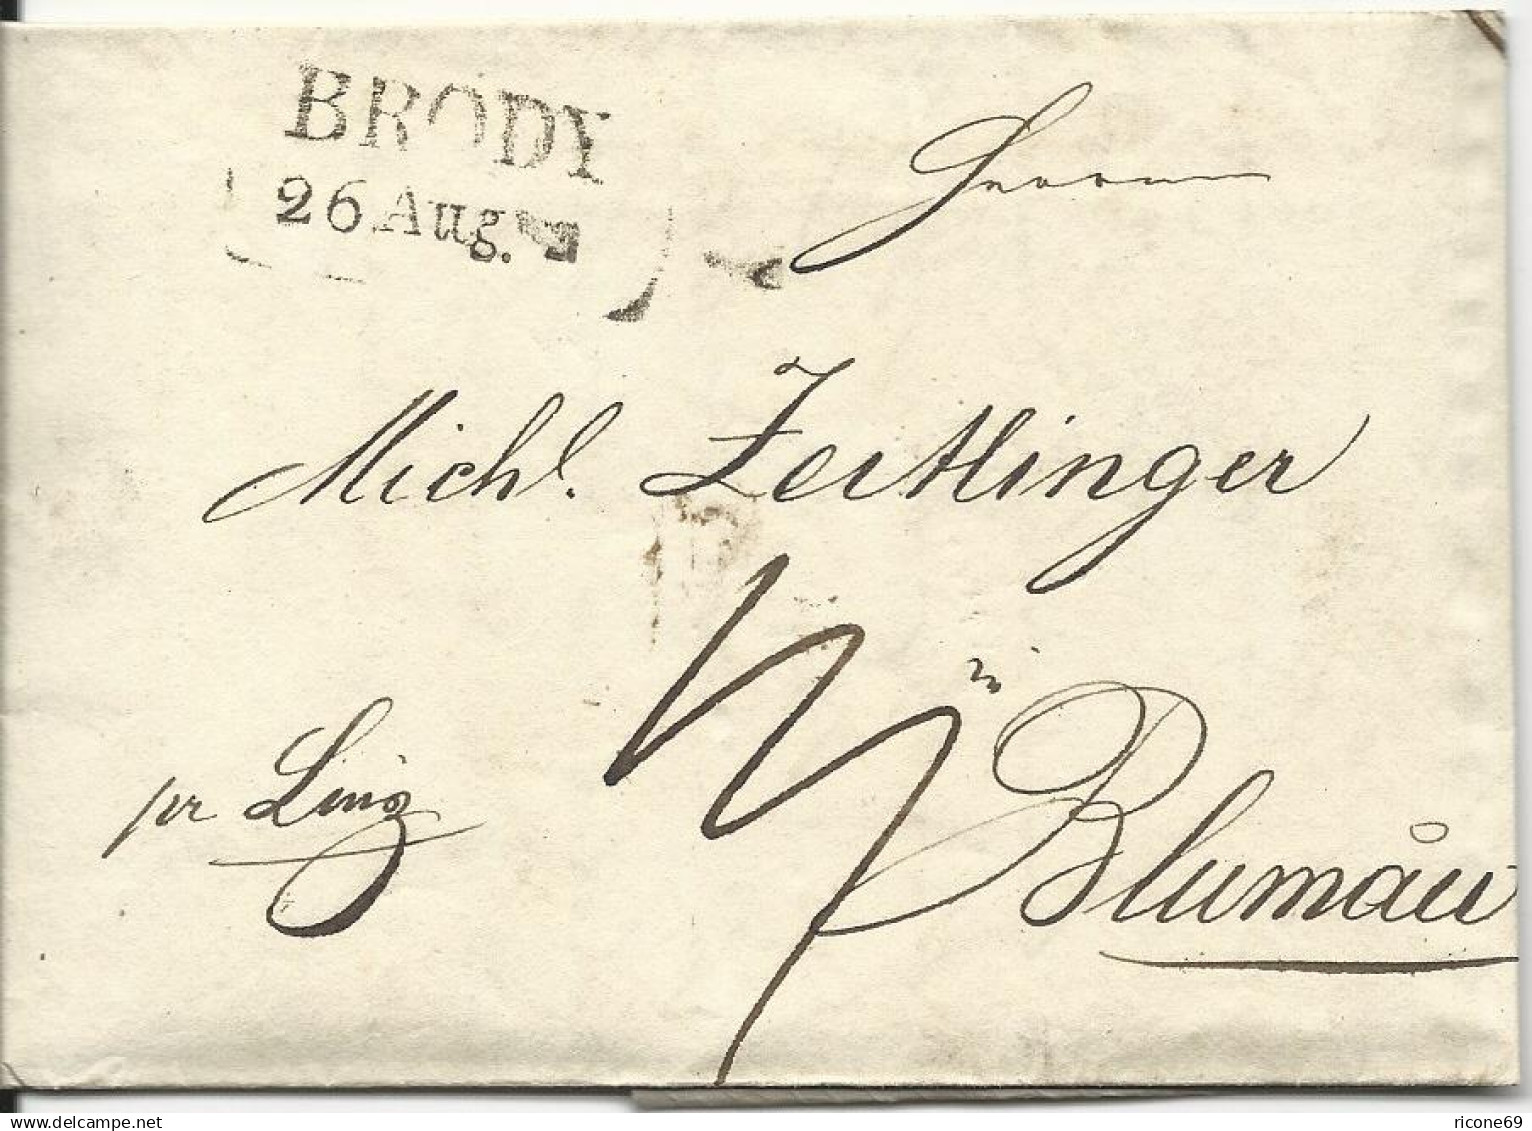 BRODY
26 Aug.
Herrn
Michl. Zeitlinger
in
Blumau
pr Linz
www.delcampe.net
ricone69